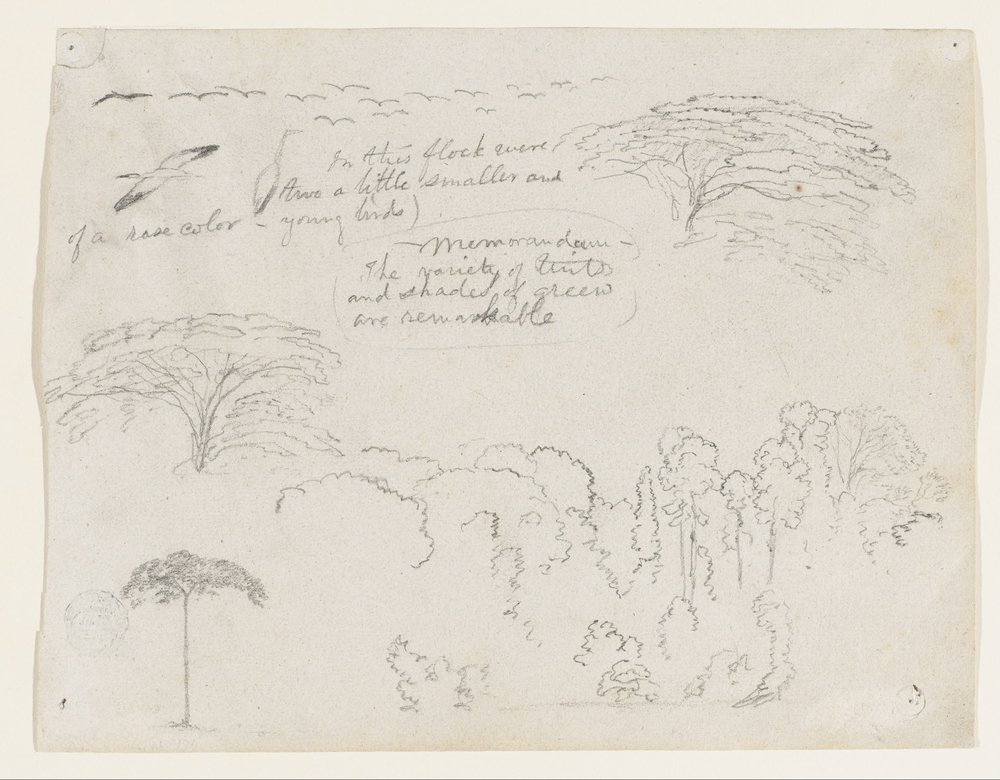 In this flock were
two a little smaller and
young birds)
of a rose color -
- Memorandum -
The variety of tints
and shades of green
are remarkable